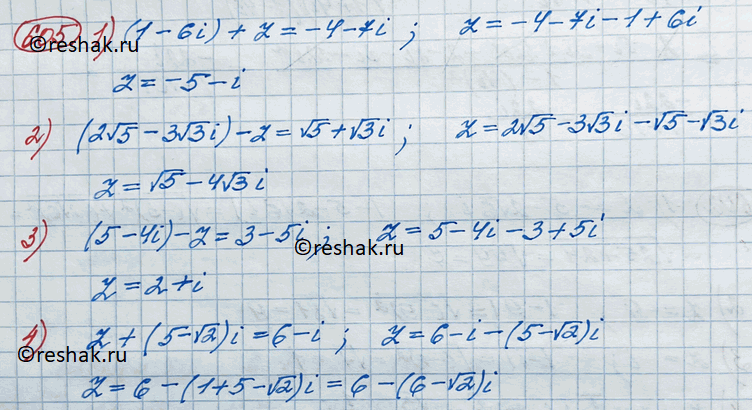 605 1) (1-6i)+z=-4-7i; z=-4-7i-1+6i
©reshak.ru
z=-5-i
2) (2√5-3√3i)-z=√5+√3i; z=2√5-3√3i-√5-√3i
z=√5-4√3i
3) (5-4i)-z=3-5i; z=5-4i-3+5i
©reshak.ru
z=2+i
4) z+(5-√2)i=6-i; z=6-i-(5-√2)i
©reshak.ru
z=6-(1+5-√2)i=6-(6-√2)i